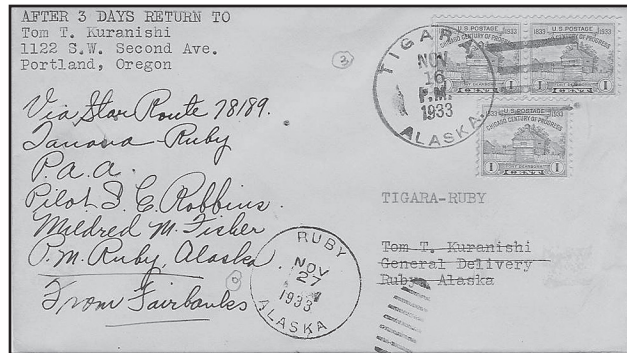 AFTER 3 DAYS RETURN TO
Tom T. Kuranishi
1122 S.W. Second Ave.
Portland, Oregon
TIGARA
NOV
16
P.M.
1933
ALASKA.
1833 U.S. POSTAGE 1933
CHICAGO CENTURY OF PROGRESS
1 CENT 1
1833 U.S. POSTAGE 1933
CHICAGO CENTURY OF PROGRESS
1 CENT 1
1833 U.S. POSTAGE 1933
CHICAGO CENTURY OF PROGRESS
1 CENT 1
Via Star Route 78189.
Tanana-Ruby
P.a.a.
Pilot S. E. Robbins.
Mildred M. Fisher
P.M. Ruby, Alaska.
From Fairbanks
RUBY
NOV
27
1933
ALASKA
TIGARA-RUBY
Tom T. Kuranishi
General Delivery
Ruby Alaska